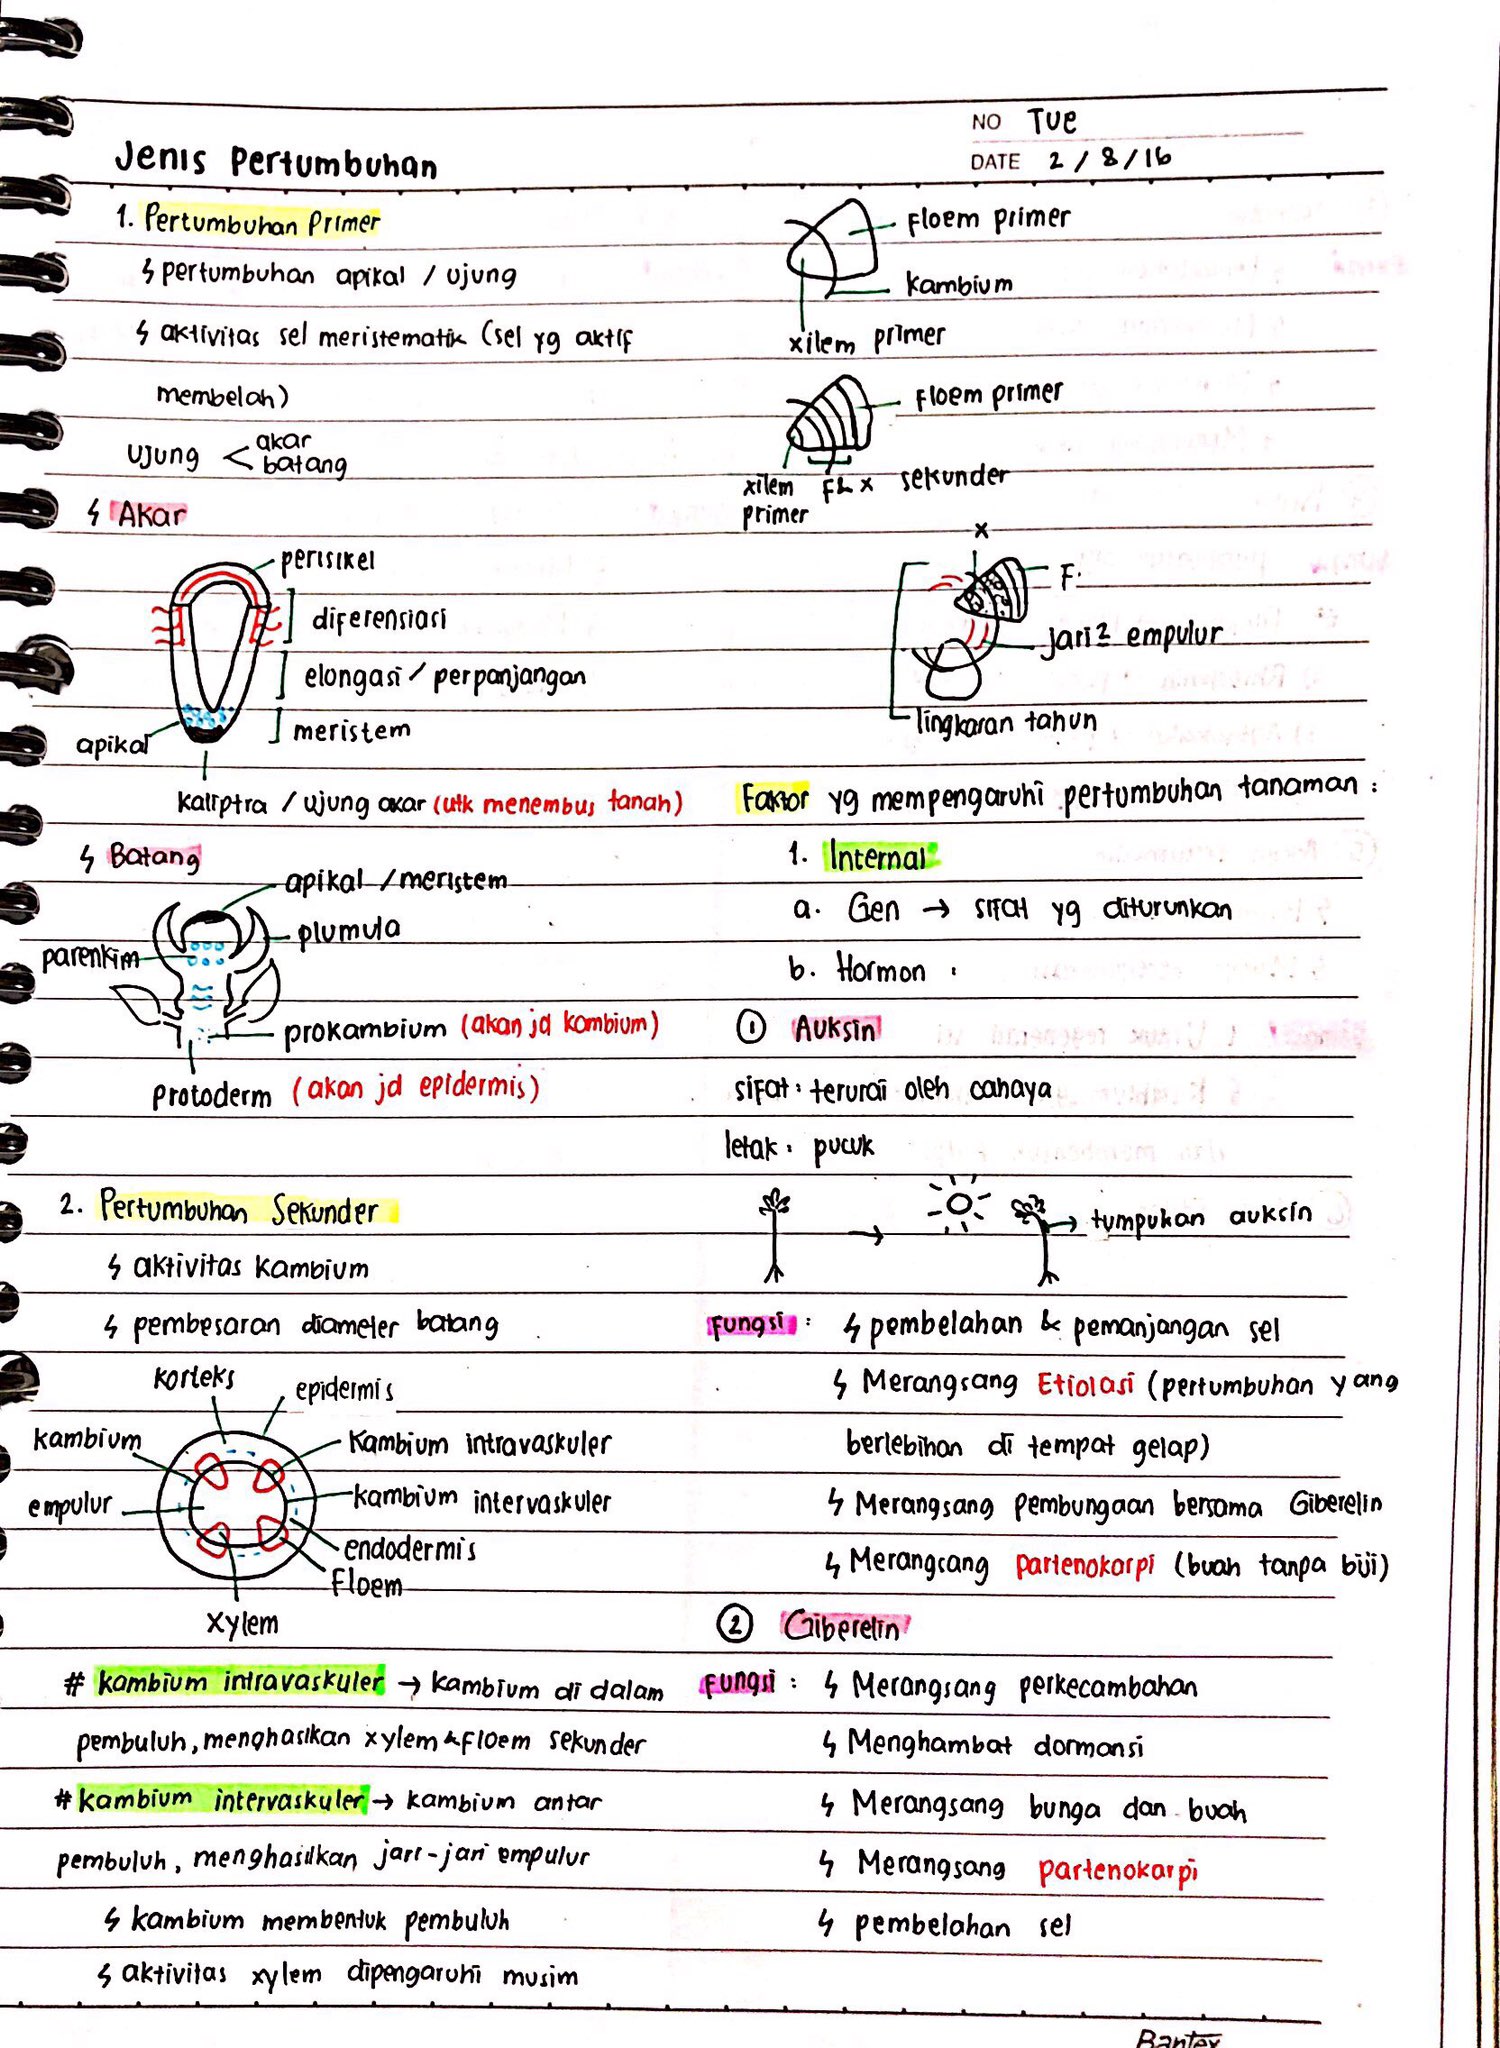 NO Tue
DATE 2/8/16
Jenis Pertumbuhan
1. Pertumbuhan Primer
↳ pertumbuhan apikal / ujung
↳ aktivitas sel meristematik (sel yg aktif
membelah)
ujung < akar
batang
↳ Akar
perisikel
diferensiasi
elongasi / perpanjangan
meristem
apikal
kaliptra / ujung akar (utk menembus tanah)
↳ Batang
apikal / meristem
plumula
parenkim
prokambium (akan jd kambium)
protoderm (akan jd epidermis)
2. Pertumbuhan Sekunder
↳ aktivitas kambium
↳ pembesaran diameter batang
korteks
epidermis
kambium
kambium intravaskuler
empulur
kambium intervaskuler
endodermis
Floem
xylem
# kambium intravaskuler → kambium di dalam
pembuluh, menghasilkan xylem & floem sekunder
# kambium intervaskuler → kambium antar
pembuluh, menghasilkan jari-jari empulur
↳ kambium membentuk pembuluh
↳ aktivitas xylem dipengaruhi musim
Floem primer
kambium
xilem primer
Floem primer
xilem
primer
F & x sekunder
x
F.
jari² empulur
lingkaran tahun
Faktor yg mempengaruhi pertumbuhan tanaman :
1. Internal
a. Gen → sifat yg diturunkan
b. Hormon :
① Auksin
sifat : terurai oleh cahaya
letak : pucuk
tumpukan auksin
Fungsi : ↳ pembelahan & pemanjangan sel
↳ Merangsang Etiolasi (pertumbuhan yang
berlebihan di tempat gelap)
↳ Merangsang pembungaan bersama Giberelin
↳ Merangsang partenokarpi (buah tanpa biji)
② Giberelin
Fungsi : ↳ Merangsang perkecambahan
↳ Menghambat dormansi
↳ Merangsang bunga dan buah
↳ Merangsang partenokarpi
↳ pembelahan sel
Bantex